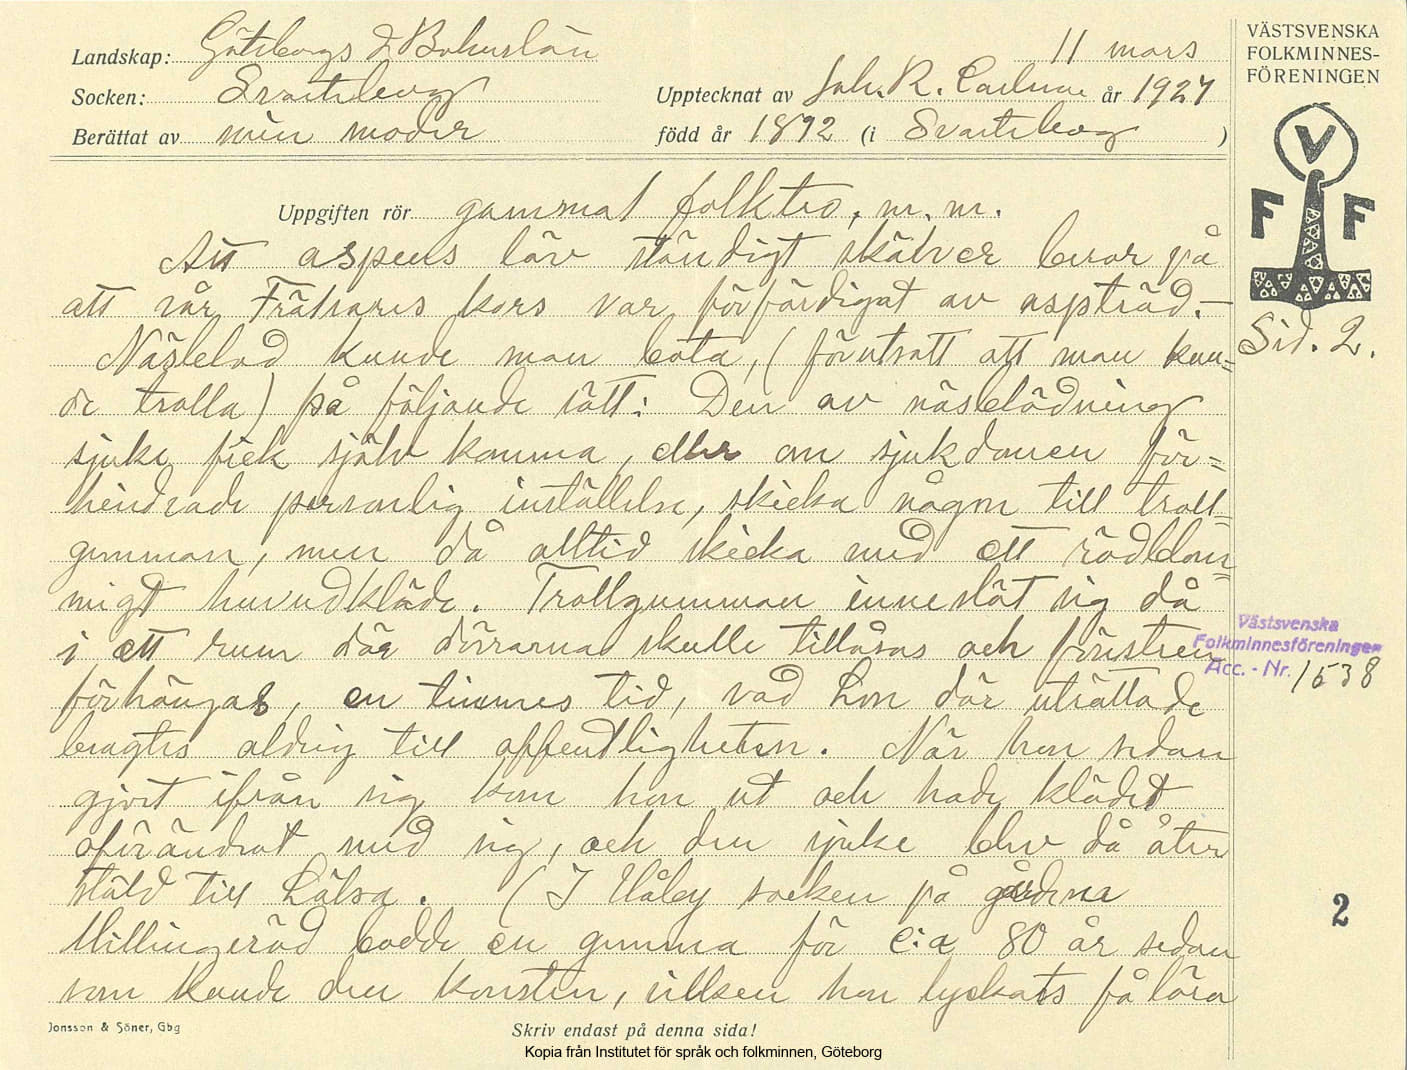 Landskap: Göteborgs & Bohuslän
11 mars
Socken: Svarteborg
Upptecknat av Joh. R. Carlsson år 1927
Berättat av min moder
född år 1892 (i Svarteborg)
VÄSTSVENSKA
FOLKMINNES-
FÖRENINGEN
V
F F
Uppgiften rör gammal folktro, m. m.
Att aspens löv ständigt skälver beror på
att vår Frälsares kors var förfärdigat av aspträd. —
Sid. 2.
Näseblod kunde man bota, (förutsatt att man kun=
de trolla) på följande sätt: Den av näseblödning
sjuke fick själv komma, eller om sjukdomen för=
hindrade personlig inställelse, skicka någon till troll=
gumman, men då alltid skicka med ett rödblom=
migt huvudkläde. Trollgumman inneslöt sig då
i ett rum där dörrarna skulle tillåsas och fönstren
förhängas, en timmes tid, vad hon där uträttade
bragtes aldrig till offentligheten. När hon sedan
gjort ifrån sig kom hon ut och hade klädet
oförändrat med sig, och den sjuke blev då åter
ställd till hälsa. (I Håby socken på gårdena
Hillingeröd bodde en gumma för c:a 80 år sedan
som kunde den konsten, vilken hon lyckats få lära
Västsvenska
Folkminnesföreningen
Acc. - Nr. 1538
2
Jonsson & Söner, Gbg
Skriv endast på denna sida!
Kopia från Institutet för språk och folkminnen, Göteborg